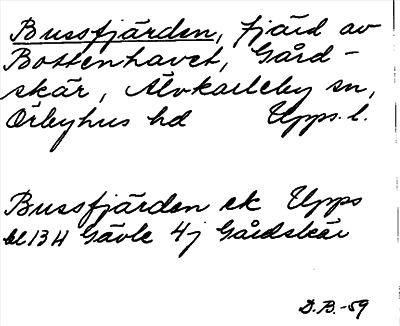 Bussfjärden, fjärd av
Bottenhavet, Gård-
skär, Älvkarleby sn,
Örbyhus hd Upps. l.
Bussfjärden ek Upps
bl 13H Gävle 4j Gårdskär
D.B.-59